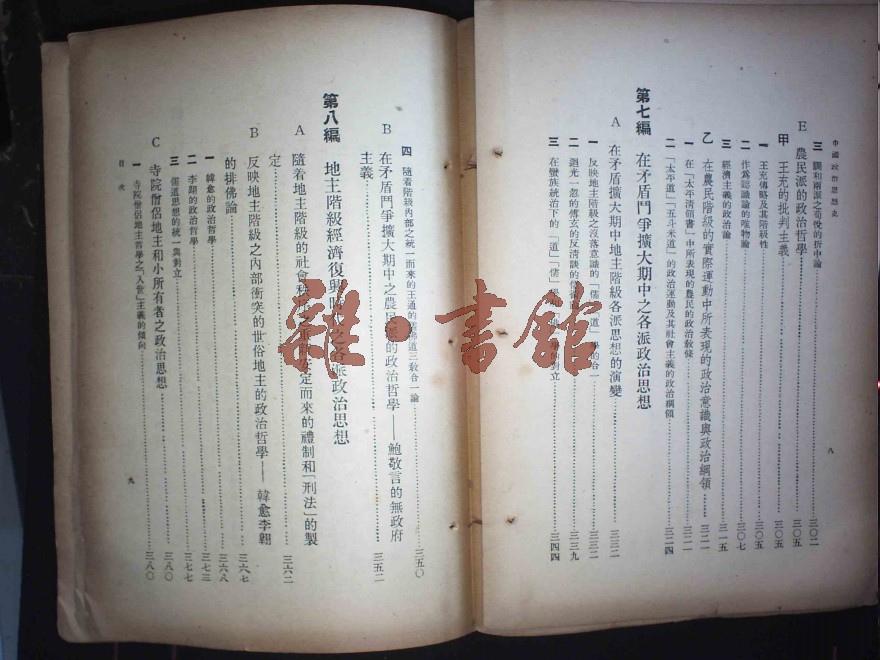 中國政治思想史
三 調和兩派之荀悅的折中論……三〇二
E 農民派的政治哲學……三〇五
甲 王充的批判主義……三〇五
一 王充傳略及其階級性……三〇五
二 作爲認識論的唯物論……三〇七
三 經濟主義的政治論……三一五
乙 在農民階級的實際運動中所表現的政治意識與政治綱領……三二一
一 在「太平清領書」中所表現的農民的政治敎條……三二一
二 「太平道」「五斗米道」的政治運動及其社會主義的政治綱領……三二四
第七編 在矛盾鬥爭擴大期中之各派政治思想
A 在矛盾擴大期中地主階級各派思想的演變……三三二
一 反映地主階級之沒落意識的「儒」「道」學的合一……三三二
二 迴光一忽的傅玄的反淸談的
三 在蠻族統治下的「道」「儒」
的對立……三四四
八
四 隨着階級內部之統一而來的王通的
三敎合一論……三五〇
B 在矛盾鬥爭擴大期中之農民派的政治哲學——鮑敬言的無政府
主義……三五二
第八編 地主階級經濟復興時代之各派政治思想
A 隨着地主階級的社會秩序之
安定而來的禮制和「刑法」的製
定……三六二
B 反映地主階級之內部衝突的世俗地主的政治哲學——韓愈李翺
的排佛論……三六七
一 韓愈的政治哲學……三六八
二 李翺的政治哲學……三七三
三 儒道思想的統一與對立……三七七
C 寺院僧侶地主和小所有者之政治思想……三八〇
一 寺院僧侶地主哲學之「入世」主義的傾向……三八〇
目次
九
雜·書館